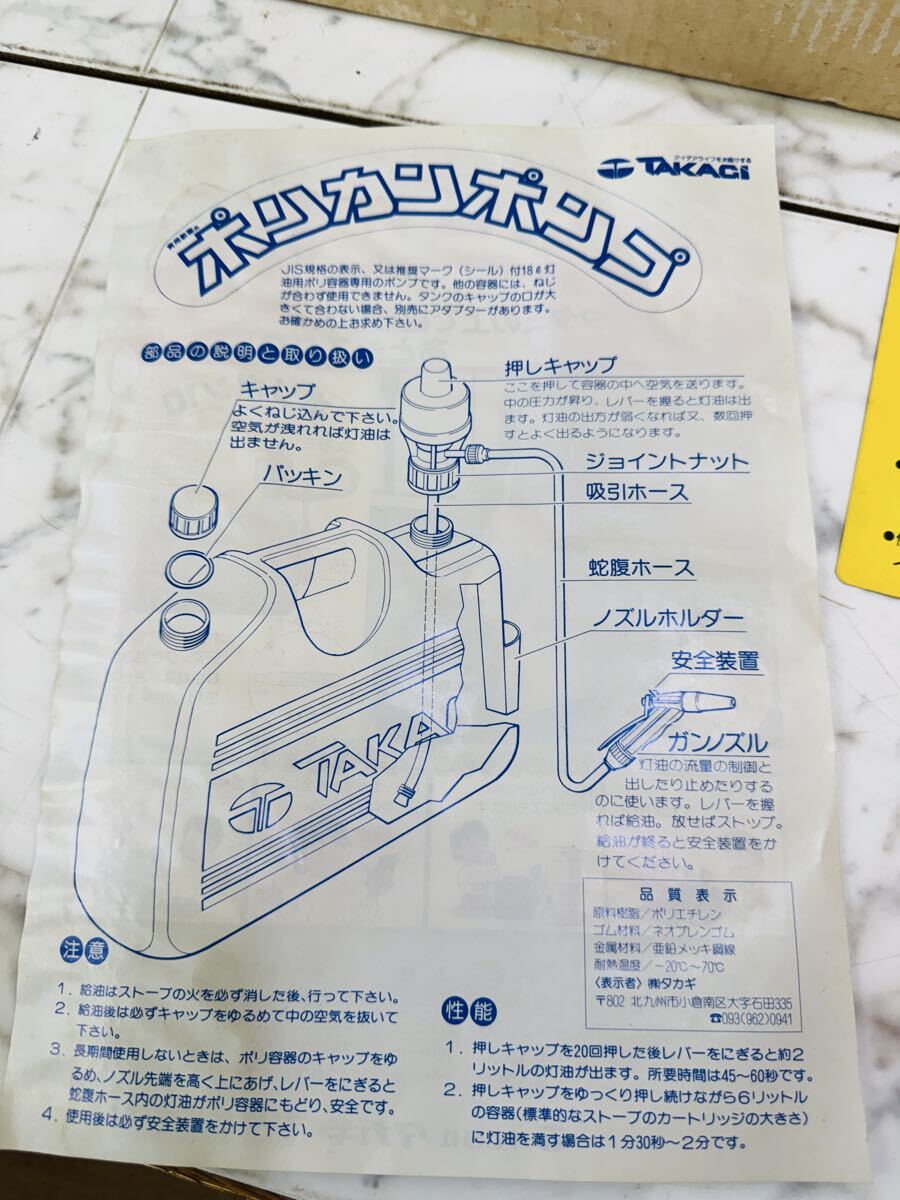 アイデアライフをお届けする
TAKAGi
ポリカンポンプ
JIS規格の表示、又は推奨マーク（シール）付18ℓ灯
油用ポリ容器専用のポンプです。他の容器には、ねじ
が合わず使用できません。タンクのキャップの口が大
きくて合わない場合、別売にアダプターがあります。
お確かめの上お求め下さい。
部品の説明と取り扱い
キャップ
よくねじ込んで下さい。
空気が洩れれば灯油は
出ません。
パッキン
押しキャップ
ここを押して容器の中へ空気を送ります。
中の圧力が昇り、レバーを握ると灯油は出
ます。灯油の出方が弱くなれば又、数回押
すとよく出るようになります。
ジョイントナット
吸引ホース
蛇腹ホース
ノズルホルダー
安全装置
ガンノズル
灯油の流量の制御と
出したり止めたりする
のに使います。レバーを握
れば給油。放せばストップ。
給油が終ると安全装置をか
けてください。
TAKA
品質表示
原料樹脂／ポリエチレン
ゴム材料／ネオプレンゴム
金属材料／亜鉛メッキ鋼線
耐熱温度／−20℃〜70℃
〈表示者〉㈱タカギ
〒802 北九州市小倉南区大字石田335
☎093(962)0941
注意
1. 給油はストーブの火を必ず消した後、行って下さい。
2. 給油後は必ずキャップをゆるめて中の空気を抜いて
下さい。
3. 長期間使用しないときは、ポリ容器のキャップをゆ
るめ、ノズル先端を高く上にあげ、レバーをにぎると
蛇腹ホース内の灯油がポリ容器にもどり、安全です。
4. 使用後は必ず安全装置をかけて下さい。
性能
1. 押しキャップを20回押した後レバーをにぎると約2
リットルの灯油が出ます。所要時間は45〜60秒です。
2. 押しキャップをゆっくり押し続けながら6リットル
の容器（標準的なストーブのカートリッジの大きさ）
に灯油を満す場合は1分30秒〜2分です。